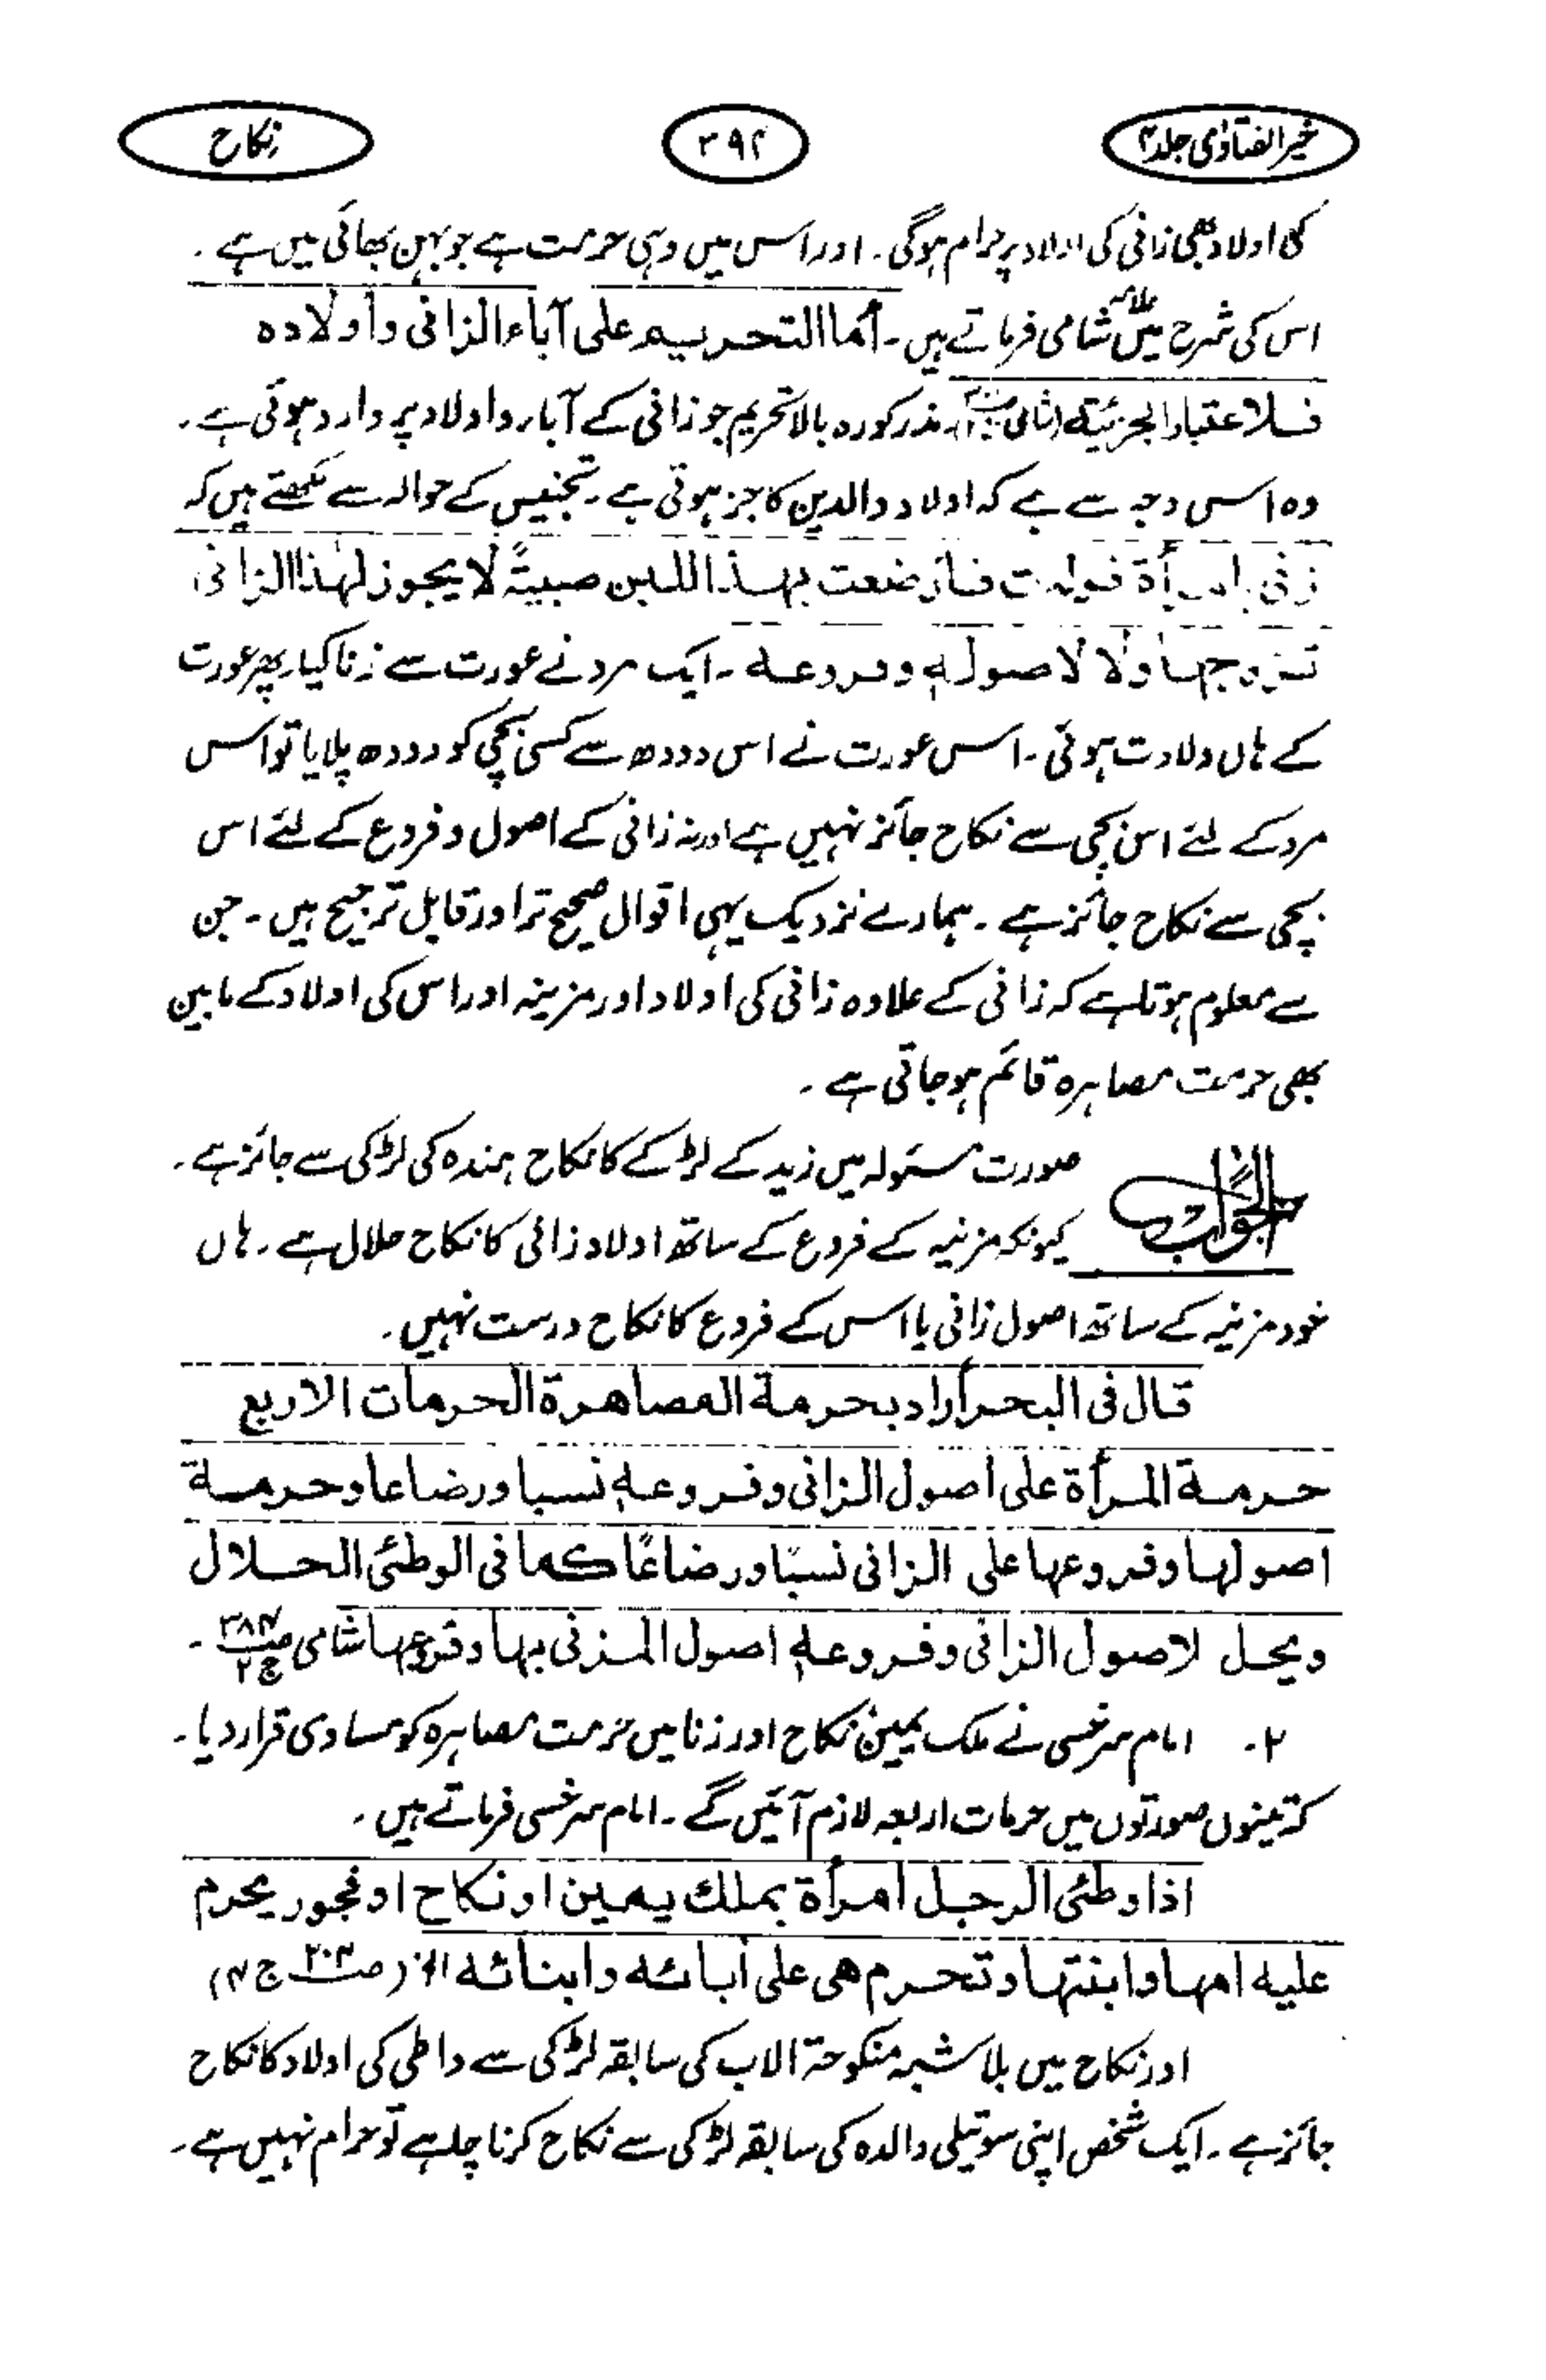 خیر الفتاوٰی جلد ۴
۳۹۲
نکاح
کی اولاد بھی زانی کی اولاد پر حرام ہوگی۔ اور اس میں وہی حرمت ہے جو بہن بھائی میں ہے۔
اس کی شرح میں علامہ شامی فرماتے ہیں۔ أما التحریم علی آباء الزانی وأولادہ
فلاعتبار الجزئیۃ (شامی) مذکورہ بالا تحریم جو زانی کے آباء و اولاد پر وارد ہوئی ہے۔
وہ اس وجہ سے ہے کہ اولاد والدین کا جز ہوتی ہے۔ تجنیس کے حوالہ سے لکھتے ہیں کہ
زنی بامرأۃ فولدت فارضعت بہذا اللبن صبیۃً لا یجوز لہٰذا الزانی
تزوجہا ولا لاصولہٖ وفروعہ۔ ایک مرد نے عورت سے زنا کیا۔ پھر عورت
کے ہاں ولادت ہوئی۔ اس عورت نے اس دودھ سے کسی بچی کو دودھ پلایا تو اس
مرد کے لئے اس بچی سے نکاح جائز نہیں ہے اور نہ زانی کے اصول و فروع کے لئے اس
بچی سے نکاح جائز ہے۔ ہمارے نزدیک یہی اقوال صحیح تر اور قابل ترجیح ہیں۔ جن
سے معلوم ہوتا ہے کہ زانی کے علاوہ زانی کی اولاد اور مزنیہ اور اس کی اولاد کے مابین
بھی حرمت مصاہرہ قائم ہو جاتی ہے۔
الجواب
صورت مسئولہ میں زید کے لڑکے کا نکاح ہندہ کی لڑکی سے جائز ہے۔
کیونکہ مزنیہ کے فروع کے ساتھ اولاد زانی کا نکاح حلال ہے۔ ہاں
خود مزنیہ کے ساتھ اصول زانی یا اس کے فروع کا نکاح درست نہیں۔
قال فی البحر أراد بحرمۃ المصاھرۃ الحرمات الاربع
حرمۃ المرأۃ علی اصول الزانی وفروعہٖ نسبا ورضاعا وحرمۃ
اصولہا وفروعہا علی الزانی نسبًا ورضاعًا کما فی الوطئ الحلال
ویحل لاصول الزانی وفروعہٖ اصول المزنی بہا وفروعہا شامی ص۳۸۴ ج۲۔
۲۔ امام سرخسی نے ملک یمین نکاح اور زنا میں حرمت مصاہرہ کو مساوی قرار دیا۔
کہ تینوں صورتوں میں حرمات اربعہ لازم آئیں گے۔ امام سرخسی فرماتے ہیں۔
اذا وطئ الرجل امرأۃ بملک یمین او نکاح او فجور یحرم
علیہ امہا وابنتہا وتحرم ھی علی اٰبائہ وابنائہ الخ (ص۲۰۴ ج۴)
اور نکاح میں بلاشبہ منکوحۃ الاب کی سابقہ لڑکی سے واطی کی اولاد کا نکاح
جائز ہے۔ ایک شخص اپنی سوتیلی والدہ کی سابقہ لڑکی سے نکاح کرنا چاہے تو حرام نہیں ہے۔